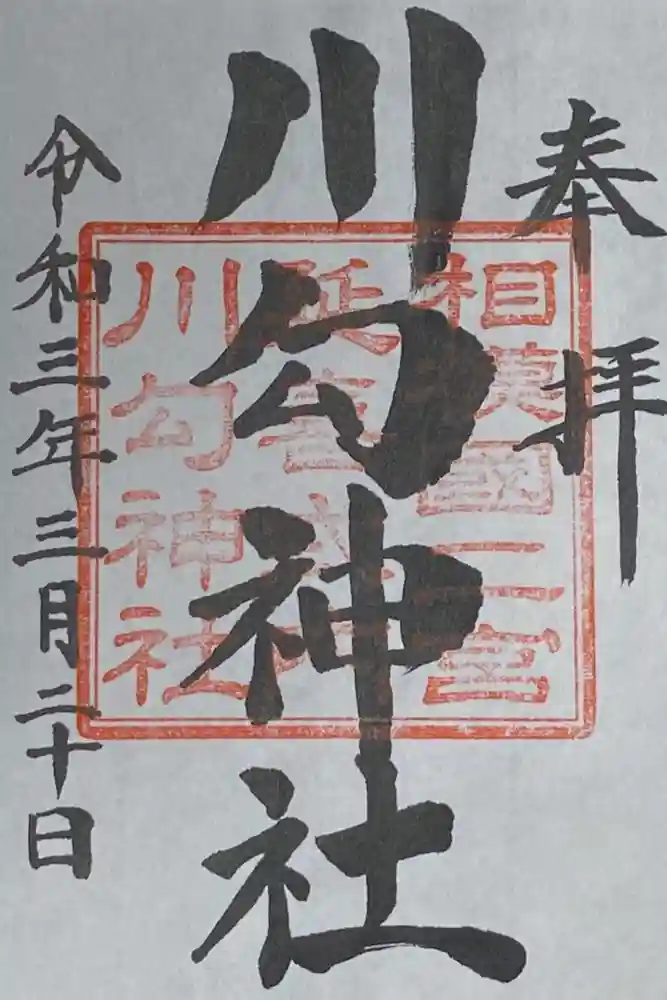 奉拝
川勾神社
令和三年三月二十日
相模國二宮
延喜式内
川勾神社